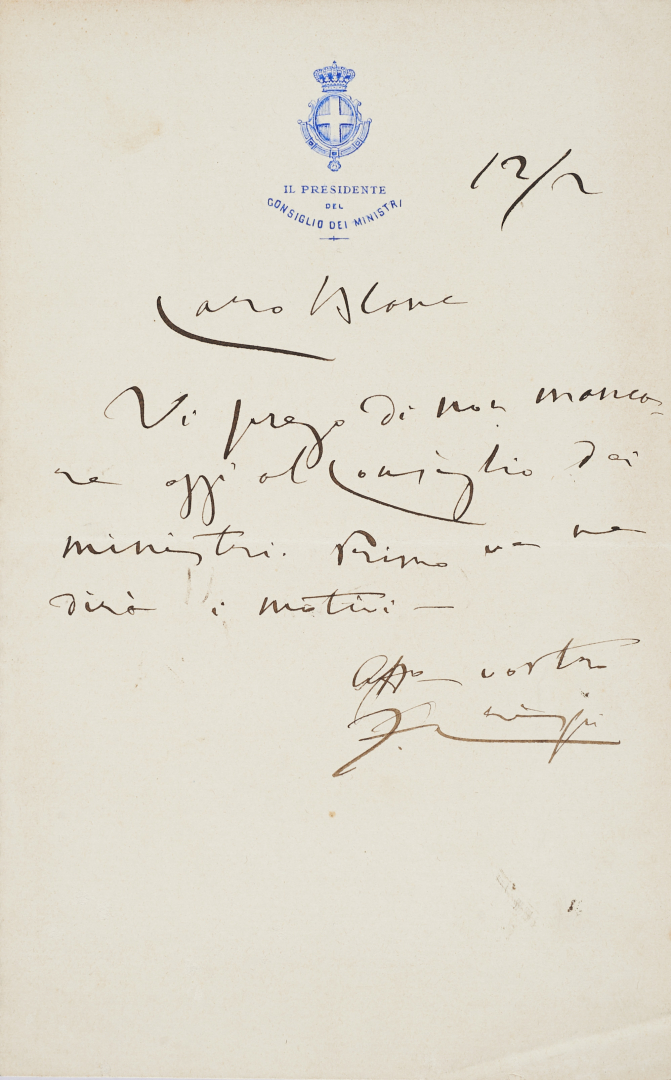 IL PRESIDENTE
DEL
CONSIGLIO DEI MINISTRI
12/2
Caro Blanc
Vi prego di non manca-
re oggi al Consiglio dei
ministri. Primo ve ne
dirò i motivi —
Affmo vostro
F. Crispi